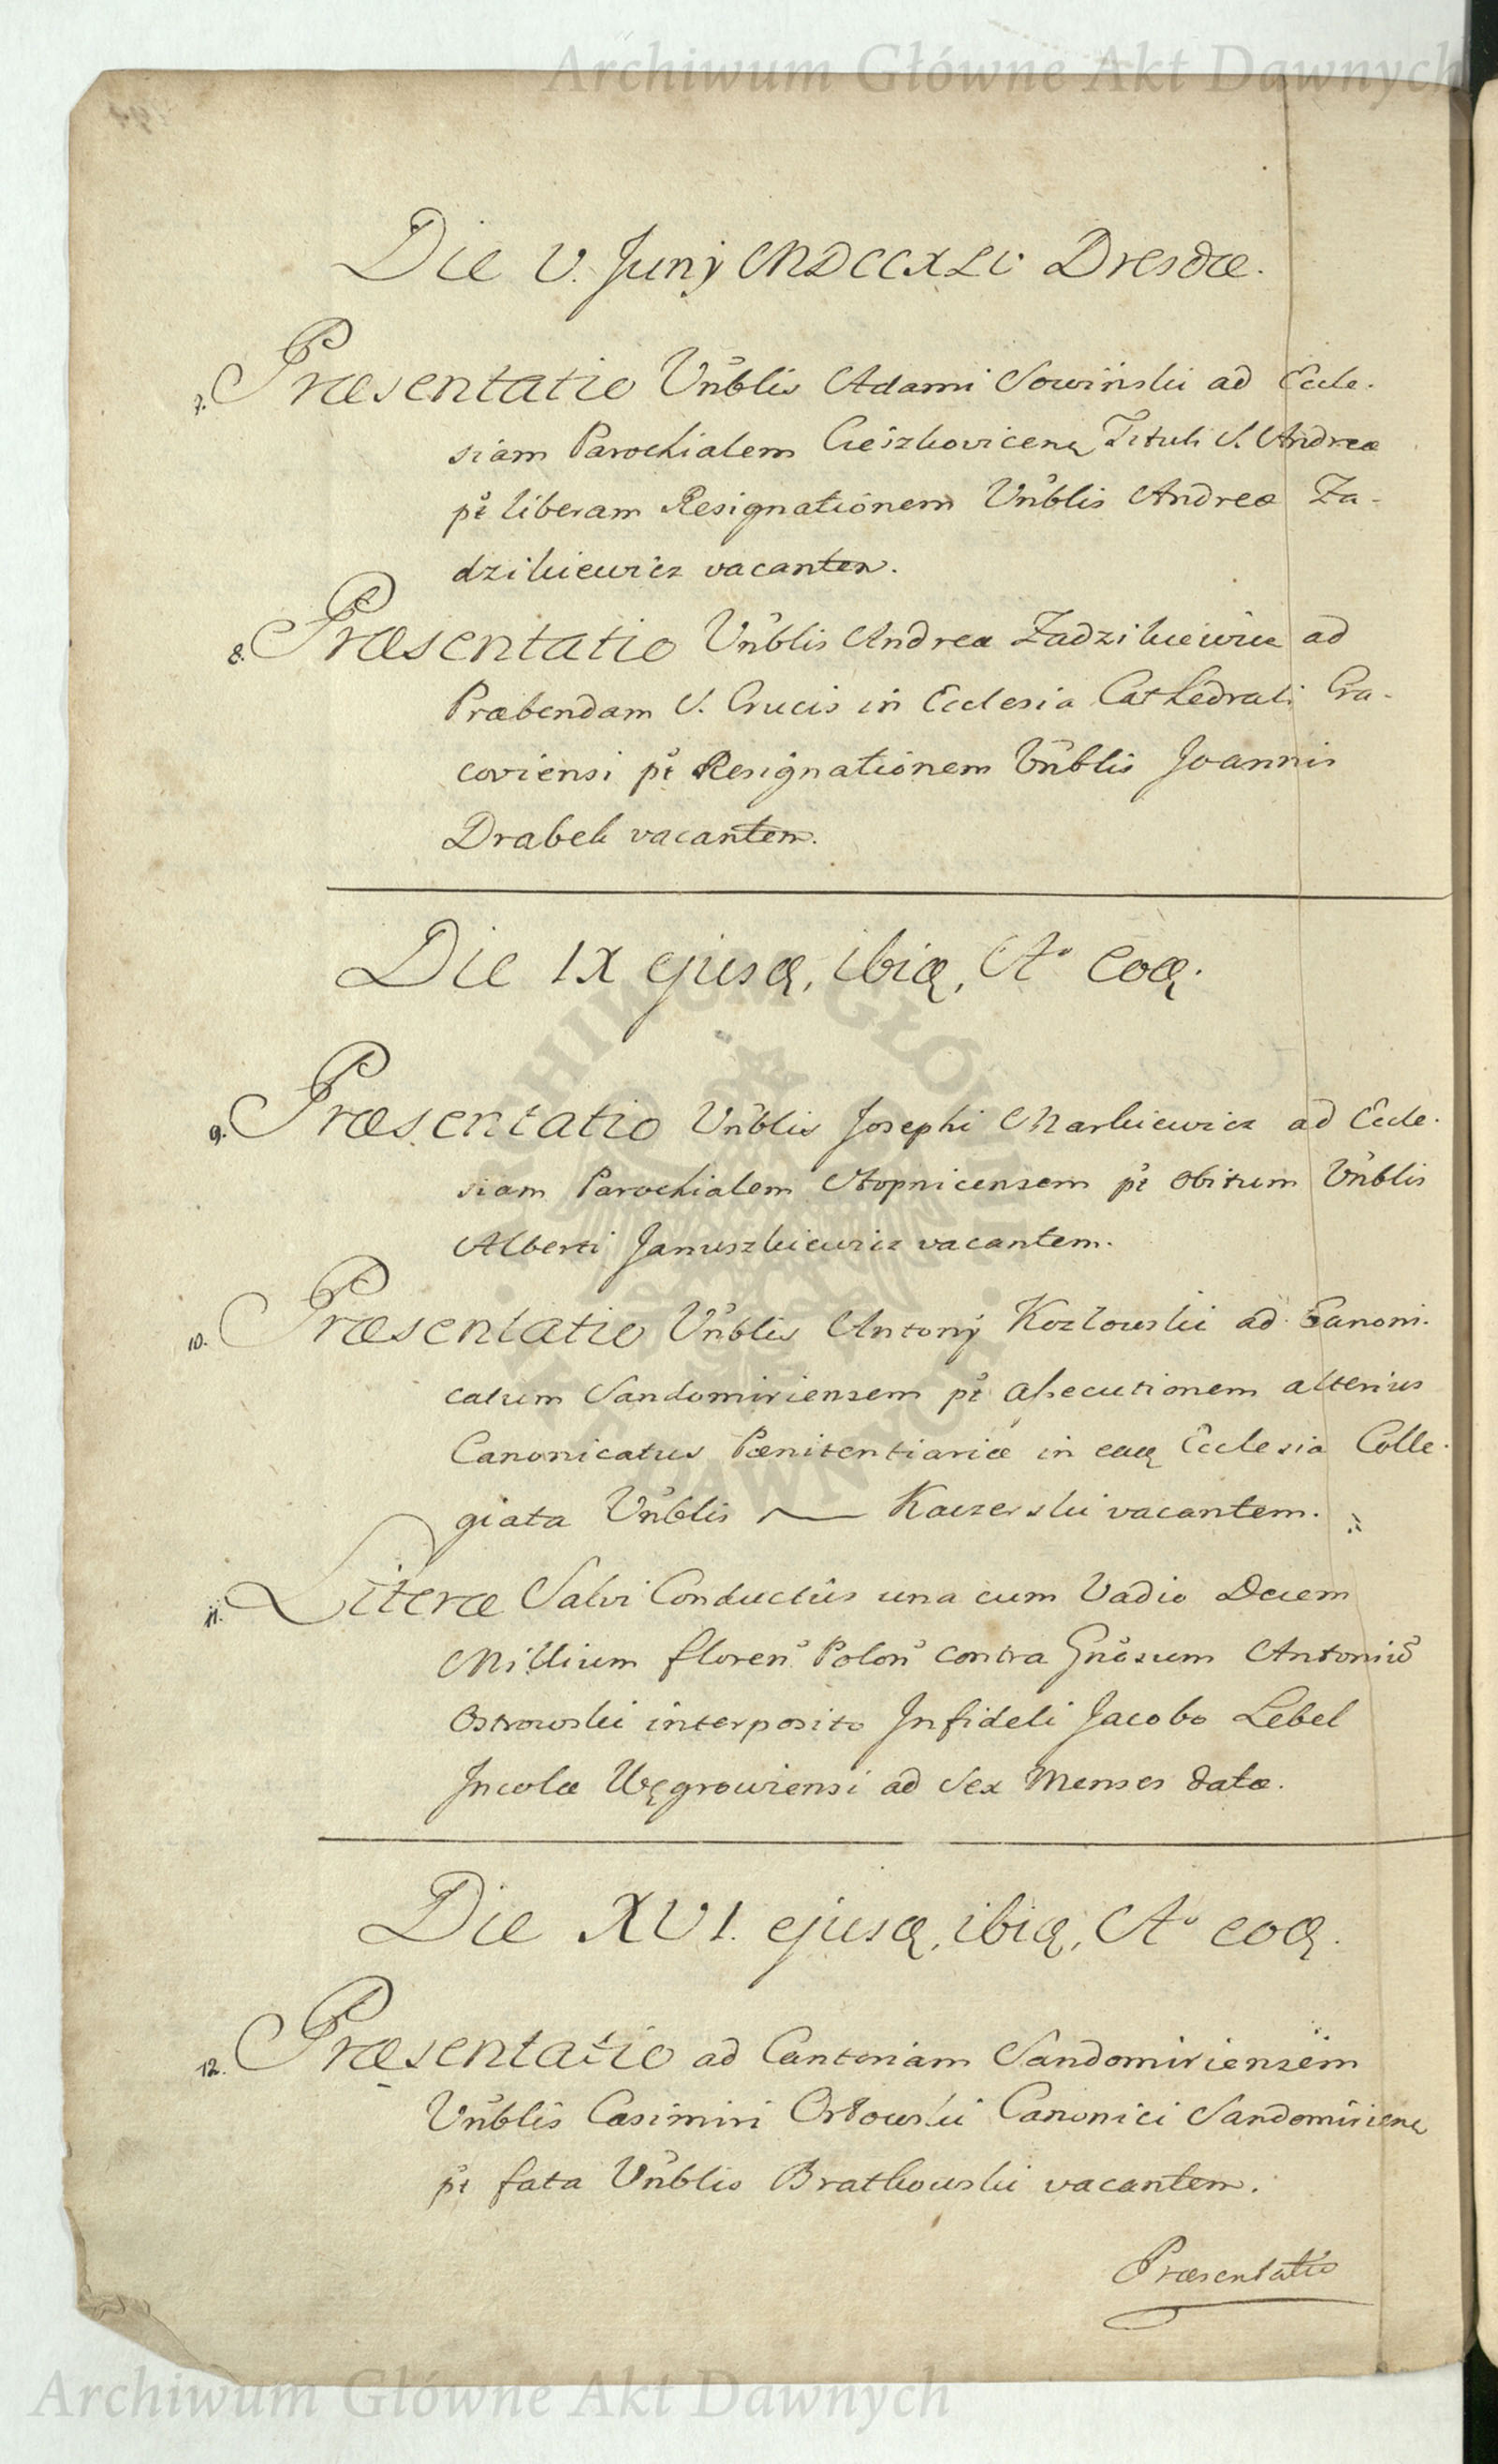 Archiwum Główne Akt Dawnych
Die V. Junÿ MDCCXLV Dresdæ.
7. Præsentatio Vn̄blis Adami Sowiński ad Eccle-
siam Parochialem Cieszkovicenę Tituli S. Andreæ
pt̄ liberam Resignationem Vn̄blis Andreæ Za-
dzikiewicz vacantem.
8. Præsentatio Vn̄blis Andreæ Zadzikiewicz ad
Præbendam S. Crucis in Ecclesia Cathedrali Cra-
coviensi pt̄ Resignationem Vn̄blis Joannis
Drabek vacantem.
Die IX ejusđ, ibiđ, Aº eođ.
9. Præsentatio Vn̄blis Josephi Markiewicz ad Eccle-
siam Parochialem Stopnicensem pt̄ obitum Vn̄blis
Alberti Januszkiewicz vacantem.
10. Præsentatio Vn̄blis Antonÿ Kozłowski ad Canoni-
catum Sandomiriensem pt̄ assecutionem alterius
Canonicatus Pœnitentiariæ in eađ Ecclesia Colle-
giata Vn̄blis — Kaczerski vacantem.
11. Literæ Salvi Conductûs una cum Vadio Decem
Millium floren̄ Polon̄ contra Gn̄osum Antoniū
Ostrowski interposito Infideli Jacobo Lebel
Incolæ Węgroviensi ad sex Menses datæ.
Die XVI. ejusđ, ibiđ, Aº eođ.
12. Præsentatio ad Cantoriam Sandomiriensem
Vn̄blis Casimiri Orłowski Canonici Sandomirienę
pt̄ fata Vn̄blis Bratkowski vacantem.
Præsentatio
Archiwum Główne Akt Dawnych